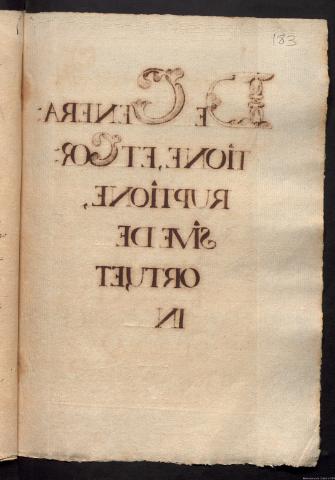 183
DE GENERA-
TIONE, ET COR-
RUPTIONE,
SIVE DE
ORTU, ET
IN